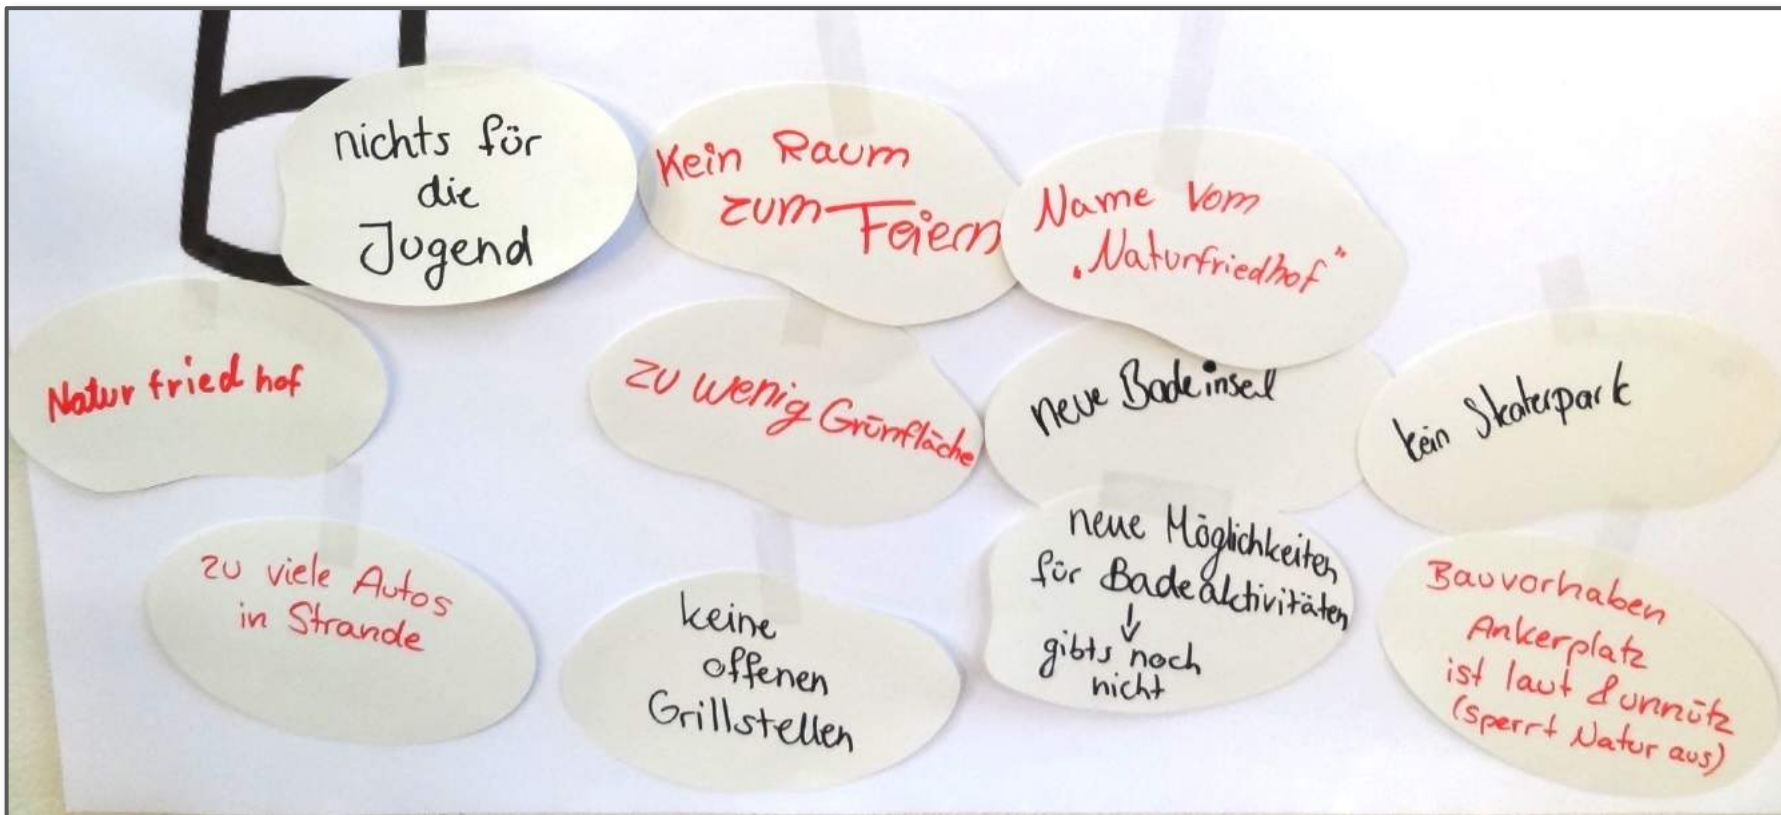 nichts für
die
Jugend
Kein Raum
zum Feiern
Name vom
"Naturfriedhof"
Naturfriedhof
zu wenig Grünfläche
neue Badeinsel
kein Skaterpark
zu viele Autos
in Strande
keine
offenen
Grillstellen
neue Möglichkeiten
für Badeaktivitäten
↓
gibts noch
nicht
Bauvorhaben
Ankerplatz
ist laut & unnütz
(sperrt Natur aus)